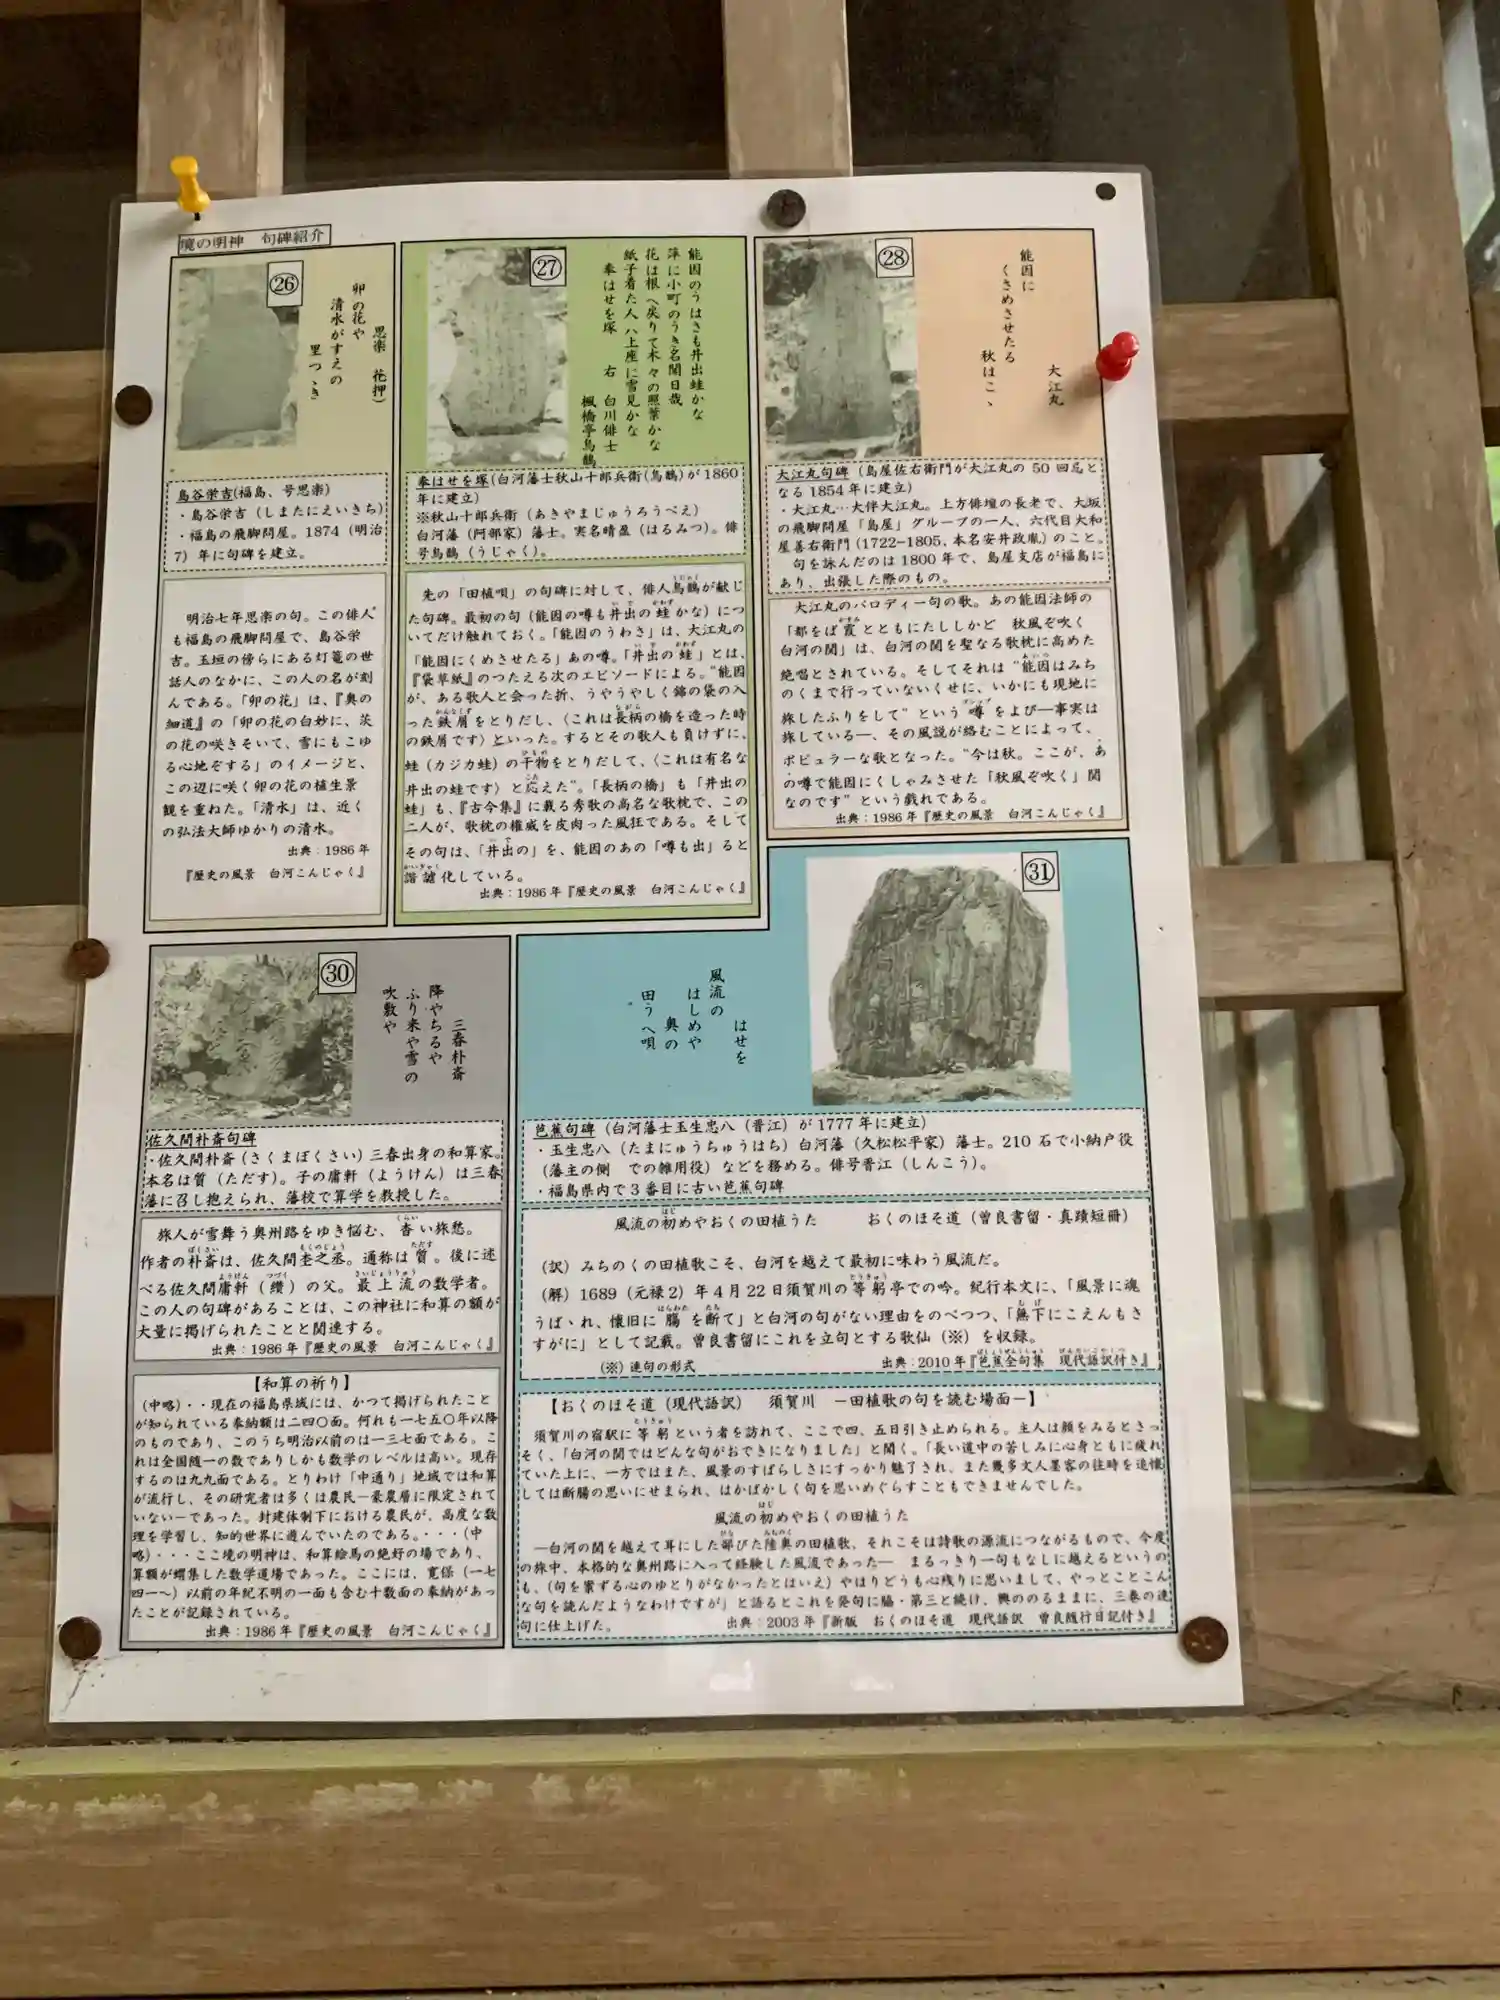 境の明神　句碑紹介
㉖
思楽　花押）
卯の花や
清水がすえの
里つゞき
島谷栄吉(福島、号思楽)
・島谷栄吉（しまたにえいきち）
・福島の飛脚問屋。1874（明治
7）年に句碑を建立。
明治七年思楽の句。この俳人
も福島の飛脚問屋で、島谷栄
吉。玉垣の傍らにある灯篭の世
話人のなかに、この人の名が刻
んである。「卯の花」は、『奥の
細道』の「卯の花の白妙に、茨
の花の咲きそいて、雪にもこゆ
る心地ぞする」のイメージと、
この辺に咲く卯の花の植生景
観を重ねた。「清水」は、近く
の弘法大師ゆかりの清水。
出典：1986年
『歴史の風景　白河こんじゃく』
㉗
能因のうはさも井出蛙かな
萍に小町のうき名聞日哉
花は根へ戻りて木々の照葉かな
紙子着た人ハ上座に雪見かな
奉はせを塚　右　白川俳士
楓橋亭烏鵲
奉はせを塚(白河藩士秋山十郎兵衛(烏鵲)が1860
年に建立)
※秋山十郎兵衛（あきやまじゅうろうべえ）
白河藩（阿部家）藩士。実名晴盈（はるみつ）。俳
号烏鵲（うじゃく）。
先の「田植唄」の句碑に対して、俳人烏鵲が献じ
た句碑。最初の句（能因の噂も井出の蛙かな）につ
いてだけ触れておく。「能因のうわさ」は、大江丸の
「能因にくめさせたる」あの噂。「井出の蛙」とは、
『袋草紙』のつたえる次のエピソードによる。"能因
が、ある歌人と会った折、うやうやしく錦の袋の入
った鉄屑をとりだし、〈これは長柄の橋を造った時
の鉄屑です〉といった。するとその歌人も負けずに、
蛙（カジカ蛙）の干物をとりだして、〈これは有名な
井出の蛙です〉と応えた"。「長柄の橋」も「井出の
蛙」も、『古今集』に載る秀歌の高名な歌枕で、この
二人が、歌枕の権威を皮肉った風狂である。そして
その句は、「井出の」を、能因のあの「噂も出」ると
諧謔化している。
出典：1986年『歴史の風景　白河こんじゃく』
㉘
大江丸
能因に
くさめさせたる
秋はこゝ
大江丸句碑（島屋佐右衛門が大江丸の50回忌と
なる1854年に建立）
・大江丸…大伴大江丸。上方俳壇の長老で、大坂
の飛脚問屋「島屋」グループの一人、六代目大和
屋善右衛門(1722−1805、本名安井政胤)のこと。
句を詠んだのは1800年で、島屋支店が福島に
あり、出張した際のもの。
大江丸のパロディー句の歌。あの能因法師の
「都をば霞とともにたししかど　秋風ぞ吹く
白河の関」は、白河の関を聖なる歌枕に高めた
絶唱とされている。そしてそれは"能因はみち
のくまで行っていないくせに、いかにも現地に
旅したふりをして"という噂をよび―事実は
旅している―、その風説が絡むことによって、
ポピュラーな歌となった。"今は秋。ここが、あ
の噂で能因にくしゃみさせた「秋風ぞ吹く」関
なのです"という戯れである。
出典：1986年『歴史の風景　白河こんじゃく』
㉚
三春朴斎
降やちるや
ふり来や雪の
吹敷や
佐久間朴斎句碑
・佐久間朴斎（さくまぼくさい）三春出身の和算家。
本名は質（ただす）。子の庸軒（ようけん）は三春
藩に召し抱えられ、藩校で算学を教授した。
旅人が雪舞う奥州路をゆき悩む、杳い旅愁。
作者の朴斎は、佐久間杢之丞。通称は質。後に述
べる佐久間庸軒（纘）の父。最上流の数学者。
この人の句碑があることは、この神社に和算の額が
大量に掲げられたことと関連する。
出典：1986年『歴史の風景　白河こんじゃく』
【和算の祈り】
（中略）・・現在の福島県域には、かつて掲げられたこと
が知られている奉納額は二四〇面。何れも一七五〇年以降
のものであり、このうち明治以前のは一三七面である。こ
れは全国随一の数でありしかも数学のレベルは高い。現存
するのは九九面である。とりわけ「中通り」地域では和算
が流行し、その研究者は多くは農民―豪農層に限定されて
いない―であった。封建体制下における農民が、高度な数
理を学習し、知的世界に遊んでいたのである。・・・（中
略）・・・ここ境の明神は、和算絵馬の絶好の場であり、
算額が蝟集した数学道場であった。ここには、寛保（一七
四一～）以前の年紀不明の一面も含む十数面の奉納があっ
たことが記録されている。
出典：1986年『歴史の風景　白河こんじゃく』
㉛
はせを
風流の
はしめや
奥の
田うへ唄
芭蕉句碑（白河藩士玉生忠八（晋江）が1777年に建立）
・玉生忠八（たまにゅうちゅうはち）白河藩（久松松平家）藩士。210石で小納戸役
（藩主の側　での雑用役）などを務める。俳号晋江（しんこう）。
・福島県内で3番目に古い芭蕉句碑
風流の初めやおくの田植うた　　おくのほそ道（曽良書留・真蹟短冊）
（訳）みちのくの田植歌こそ、白河を越えて最初に味わう風流だ。
（解）1689（元禄2）年4月22日須賀川の等躬亭での吟。紀行本文に、「風景に魂
うばゝれ、懐旧に腸を断て」と白河の句がない理由をのべつつ、「無下にこえんもさ
すがに」として記載。曽良書留にこれを立句とする歌仙（※）を収録。
（※）連句の形式　　出典：2010年『芭蕉全句集　現代語訳付き』
【おくのほそ道（現代語訳）　須賀川　―田植歌の句を読む場面―】
須賀川の宿駅に等躬という者を訪れて、ここで四、五日引き止められる。主人は顔をみるとさっ
そく、「白河の関ではどんな句がおできになりました」と聞く。「長い道中の苦しみに心身ともに疲れ
ていた上に、一方ではまた、風景のすばらしさにすっかり魅了され、また幾多文人墨客の往時を追懐
しては断腸の思いにせまられ、はかばかしく句を思いめぐらすこともできませんでした。
風流の初めやおくの田植うた
―白河の関を越えて耳にした鄙びた陸奥の田植歌、それこそは詩歌の源流につながるもので、今度
の旅中、本格的な奥州路に入って経験した風流であった―　まるっきり一句もなしに越えるというの
も、（句を案ずる心のゆとりがなかったとはいえ）やはりどうも心残りに思いまして、やっとことこん
な句を読んだようなわけですが」と語るとこれを発句に脇・第三と続け、興ののるままに、三巻の連
句に仕上げた。　　出典：2003年『新版　おくのほそ道　現代語訳　曽良随行日記付き』